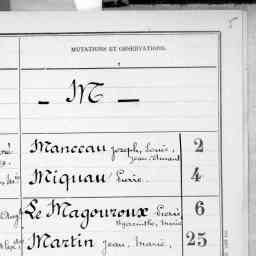 5
MUTATIONS ET OBSERVATIONS.
— M —
Manceau Joseph, Louis, 2
Jean Amant
Miquau Pierre 4
Le Magouroux Pierre 6
Hyacinthe, Marie
Martin Jean, Marie, 25